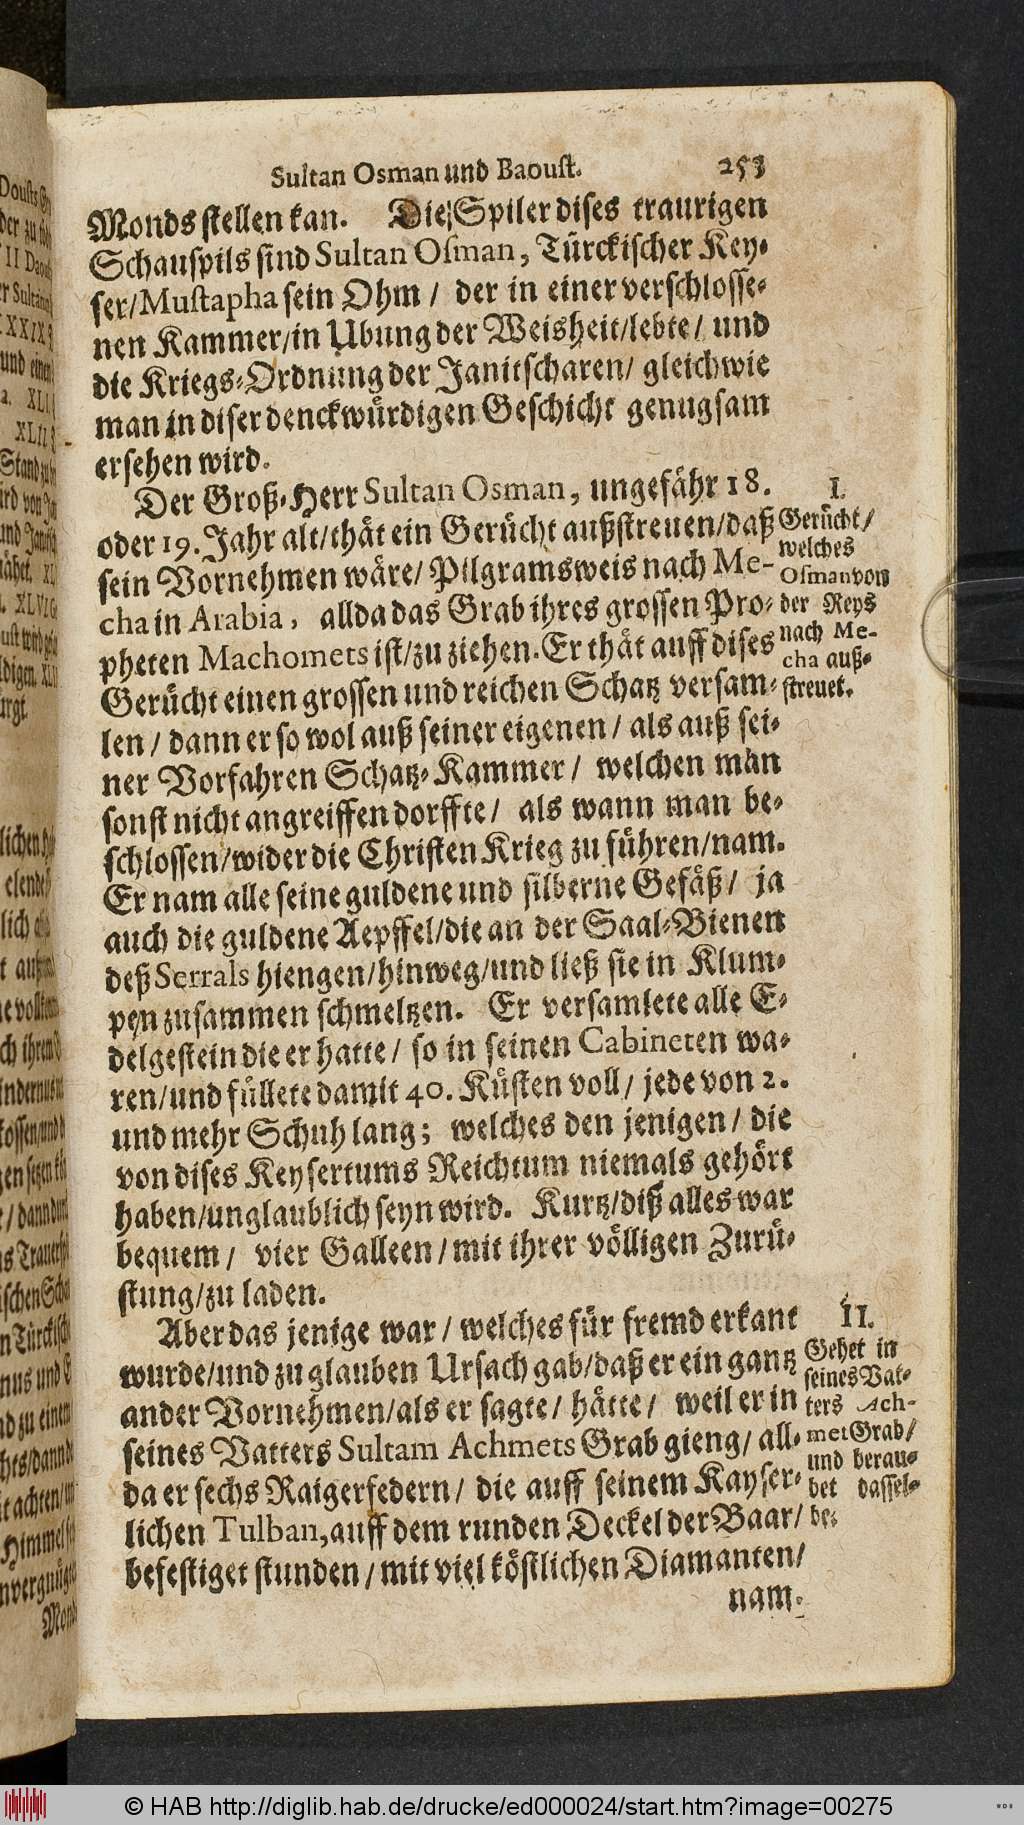 Sultan Osman und Baoust. 253
Monds stellen kan. Die Spiler dises traurigen
Schauspils sind Sultan Osman, Türckischer Key-
ser/Mustapha sein Ohm / der in einer verschlosse-
nen Kammer/in Ubung der Weisheit/lebte/ und
die Kriegs-Ordnung der Janitscharen/ gleichwie
man in diser denckwürdigen Geschicht genugsam
ersehen wird.
Der Groß-Herr Sultan Osman, ungefähr 18.
oder 19. Jahr alt/thät ein Gerücht außstreuen/daß
sein Vornehmen wäre/ Pilgramsweis nach Me-
cha in Arabia, allda das Grab ihres grossen Pro-
pheten Machomets ist/zu ziehen. Er thät auff dises
Gerücht einen grossen und reichen Schatz versam-
len / dann er so wol auß seiner eigenen / als auß sei-
ner Vorfahren Schatz-Kammer / welchen man
sonst nicht angreiffen dorffte/ als wann man be-
schlossen/wider die Christen Krieg zu führen/nam.
Er nam alle seine guldene und silberne Gefäß/ ja
auch die guldene Aepffel/die an der Saal-Bienen
deß Serrals hiengen/hinweg/und ließ sie in Klum-
pen zusammen schmeltzen. Er versamlete alle E-
delgestein die er hatte / so in seinen Cabineten wa-
ren/und füllete damit 40. Küsten voll/ jede von 2.
und mehr Schuh lang; welches den jenigen / die
von dises Keysertums Reichtum niemals gehört
haben/unglaublich seyn wird. Kurtz/diß alles war
bequem / vier Galleen / mit ihrer völligen Zurü-
stung/zu laden.
Aber das jenige war / welches für fremd erkant
wurde/und zu glauben Ursach gab/daß er ein gantz
ander Vornehmen/als er sagte/ hätte/ weil er in
seines Vatters Sultam Achmets Grab gieng/ all-
da er sechs Raigerfedern/ die auff seinem Kayser-
lichen Tulban, auff dem runden Deckel der Baar/
befestiget stunden / mit viel köstlichen Diamanten/
nam-
I.
Gerücht/
welches
Osman von
der Reys
nach Me-
cha auß-
streuet.
II.
Gehet in
seines Vat-
ters Ach-
met Grab/
und berau-
bet dassel-
be.
© HAB http://diglib.hab.de/drucke/ed000024/start.htm?image=00275